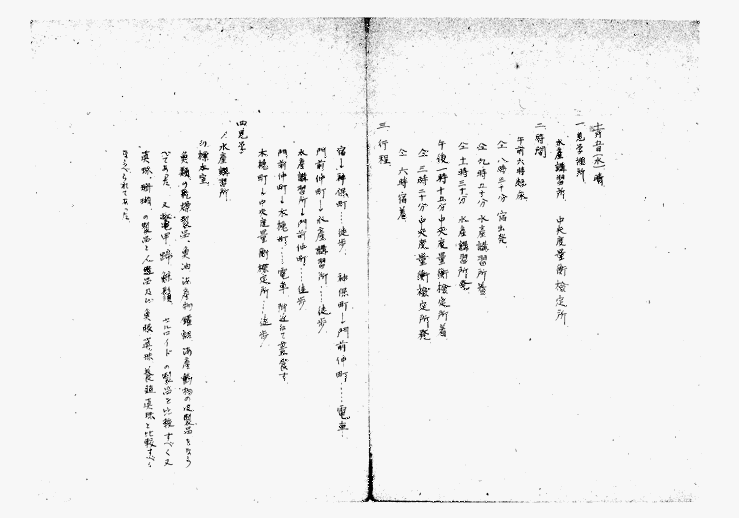 一 見学個所
水産講習所 中央度量衡検定所
二 時間
午前六時起床
仝 八時三十分 宿出発
仝 九時五十分 水産講習所着
仝 十一時三十分 水産講習所発
午後一時十五分中央度量衡検定所着
仝 三時三十分中央度量衡検定所発
仝 六時宿着
三 行程
宿→神保町 徒歩 神保町→門前仲町……電車
門前仲町→水産講習所……徒歩
水産講習所→門前仲町……徒歩
門前仲町→木挽町……電車 附近にて昼食す
木挽町→中央度量衡検定所…徒歩
四 見学
1 水産講習所
標本室
魚類の乾燥製品、魚油 海産物罐詰 海産動物の皮製品をなら
べてあった 又 甲 蹄 鯨鬚 セルロイドの製品を比較すべく又
真珠、珊瑚の製品と人造品及び魚眼真珠養殖真珠と比較すべく
ならべられてあった。